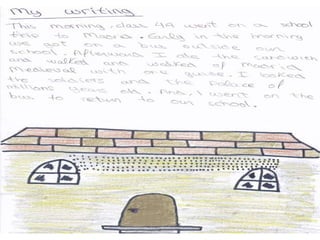 My writing
This morning class 4A went on a school
trip to Madrid. Early in the morning
we got on a bus outside our
school. Afterward I ate the sandwich
and walked and walked of
Medieval with one guide. I looked
the soldiers and the Palace of
millions years old. And I went on the
bus to return to our school.